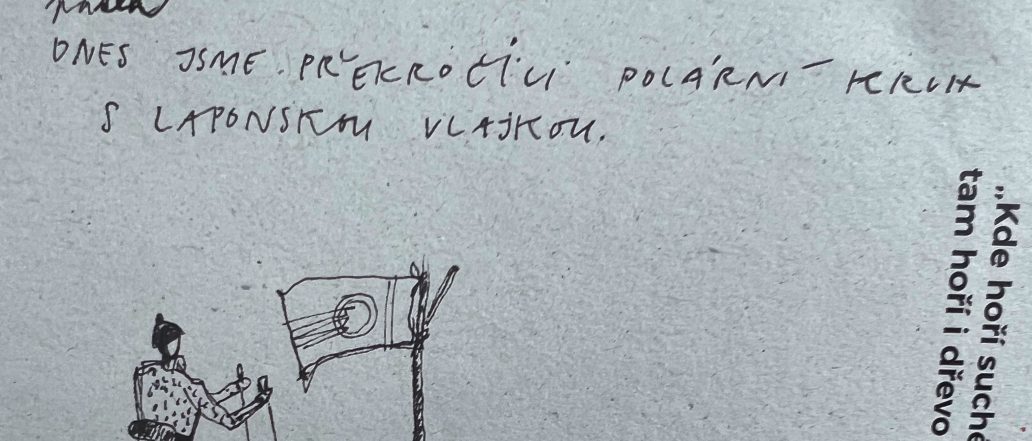 DNES JSME PŘEKROČILI POLÁRNÍ KRUH
S LAPONSKOU VLAJKOU.
„Kde hoří suché
tam hoří i dřevo